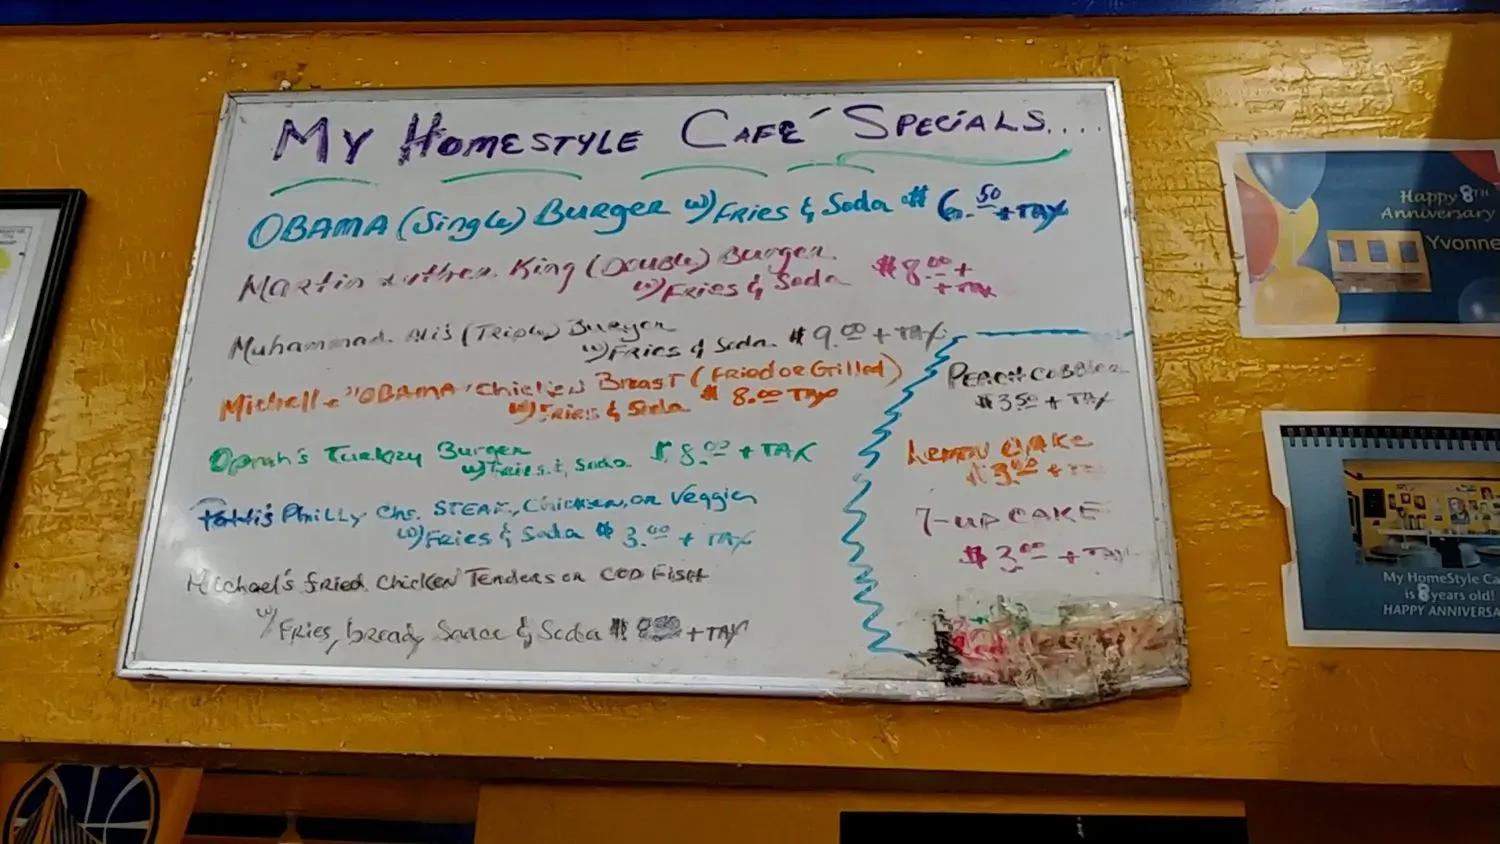 My Homestyle Café Specials....
OBAMA (Single) Burger w/ Fries & Soda $6.50 + TAX
Martin Luther King (Double) Burger
w/ Fries & Soda $8.00 +
+ TAX
Muhammad Ali's (Triple) Burger
w/ Fries & Soda $9.00 + TAX
Michelle "OBAMA" Chicken Breast (Fried or Grilled)
w/ Fries & Soda $8.00 TAX
Oprah's Turkey Burger
w/ Fries & Soda $8.00 + TAX
Philly Chs. STEAK, Chicken, or Veggie
w/ Fries & Soda $3.00 + TAX
Michael's Fried Chicken Tenders or COD Fish
w/ Fries, bread, Sauce & Soda $ + TAX
PEACH COBBLER
$3.50 + TAX
Lemon CAKE
$3.00 +
7-UP CAKE
$3.00 + TAX
Happy 8TH
Anniversary
Yvonne
My HomeStyle Ca
is 8 years old!
HAPPY ANNIVERSA